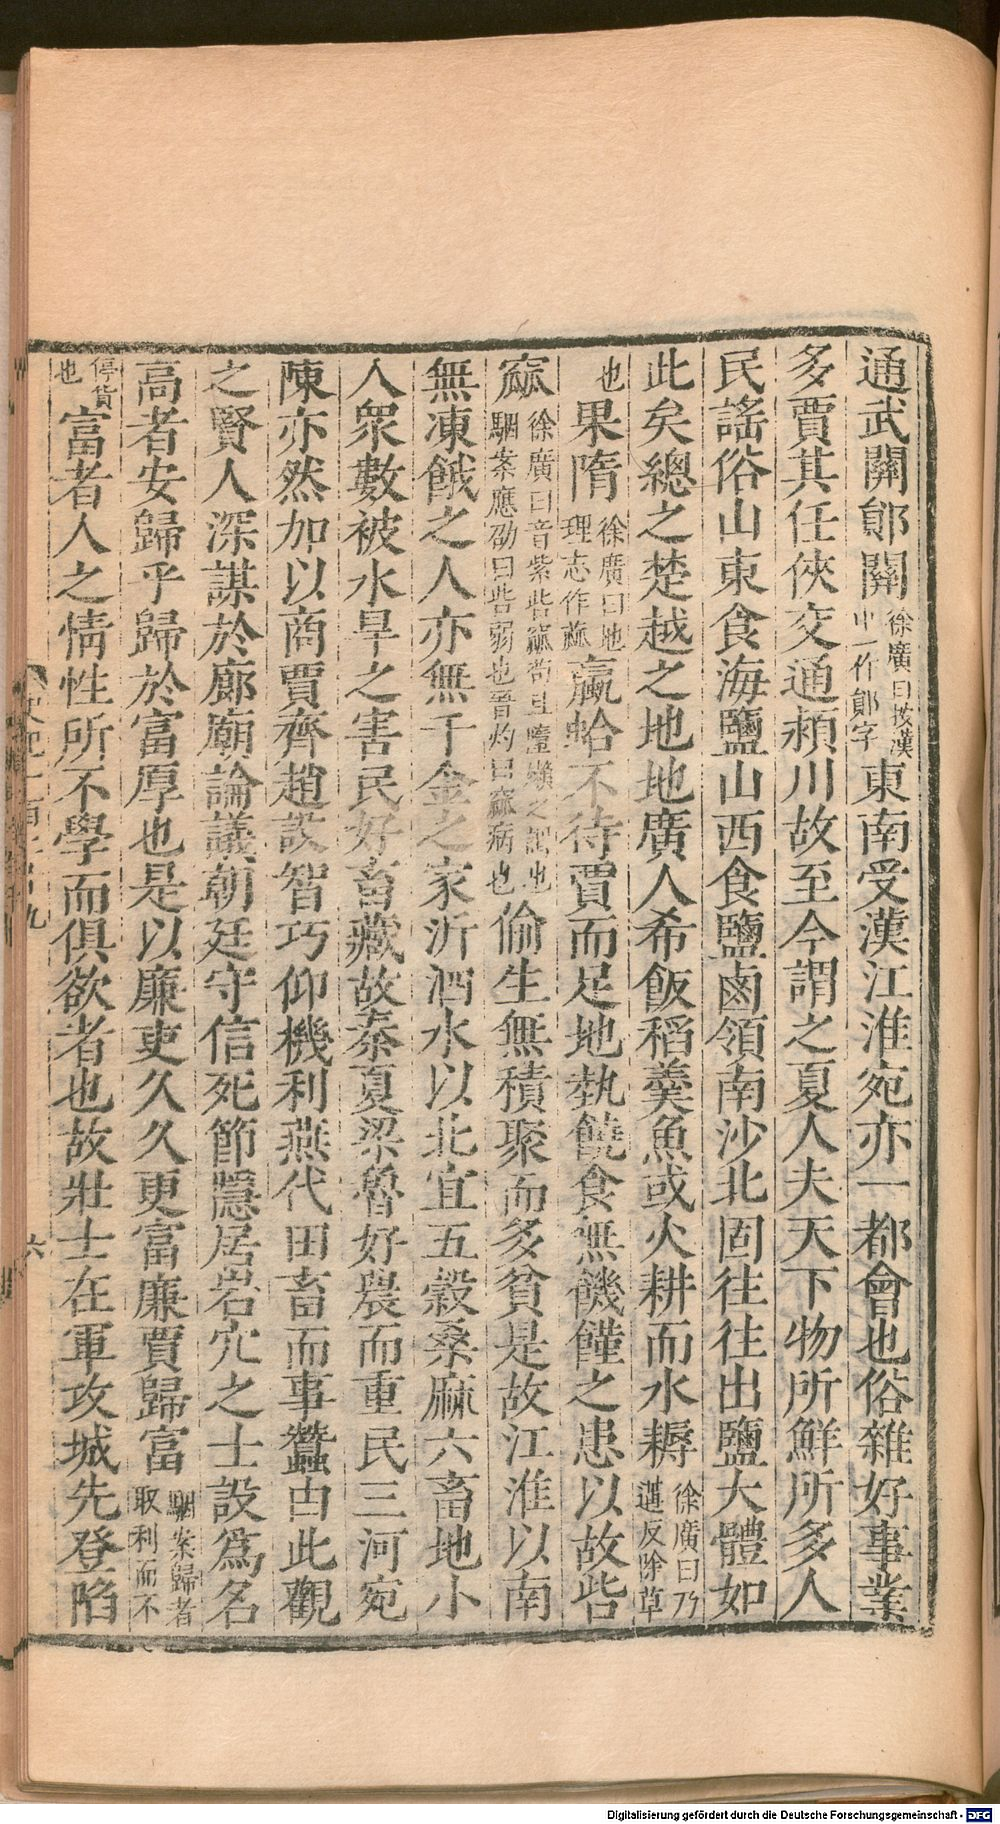 通武關鄖關徐廣曰按漢中一作鄖字東南受漢江淮宛亦一都會也俗雜好事業
多賈其任俠交通潁川故至今謂之夏人夫天下物所鮮所多人
民謠俗山東食海鹽山西食鹽鹵領南沙北固往往出鹽大體如
此矣總之楚越之地地廣人希飯稻羹魚或火耕而水耨徐廣曰乃遘反除草
也果隋徐廣曰地理志作蓏蠃蛤不待賈而足地埶饒食無饑饉之患以故呰
窳徐廣曰音紫呰窳苟且墮嬾之謂也駰案應劭曰呰弱也晉灼曰窳病也偷生無積聚而多貧是故江淮以南
無凍餓之人亦無千金之家沂泗水以北宜五穀桑麻六畜地小
人眾數被水旱之害民好畜藏故秦夏梁魯好農而重民三河宛
陳亦然加以商賈齊趙設智巧仰機利燕代田畜而事蠶由此觀
之賢人深謀於廊廟論議朝廷守信死節隱居岩穴之士設為名
高者安歸乎歸於富厚也是以廉吏久久更富廉賈歸富駰案歸者取利而不
停貨也富者人之情性所不學而俱欲者也故壯士在軍攻城先登陷
史記一百二十九
六
Digitalisierung gefördert durch die Deutsche Forschungsgemeinschaft - DFG